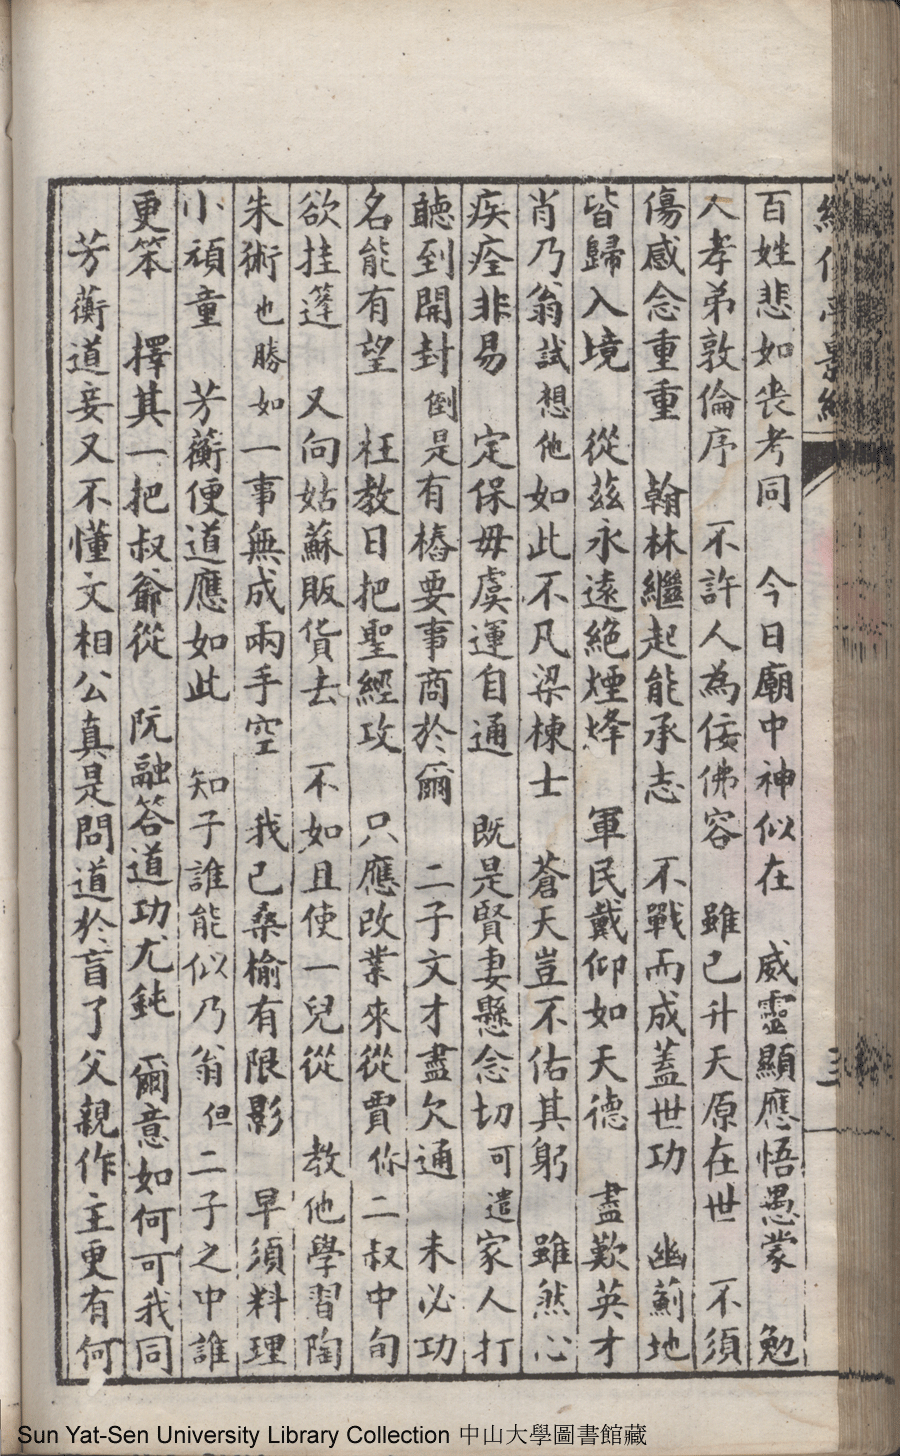 百姓悲如喪考同　今日廟中神似在　威靈顯應悟愚蒙　勉
人孝弟敦倫序　不許人為佞佛容　雖已升天原在世　不須
傷感念重重　翰林繼起能承志　不戰而成蓋世功　幽薊地
皆歸入境　從茲永遠絕煙烽　軍民戴仰如天德　盡歎英才
肖乃翁試想他如此不凡梁棟士　蒼天豈不佑其躬　雖然心
疾痊非易　定保毋虞運自通　既是賢妻懸念切可遣家人打
聽到開封倒是有樁要事商於爾　二子文才盡欠通　未必功
名能有望　枉教日把聖經攻　只應改業來從賈你二叔中旬
欲挂篷　又向姑蘇販貨去　不如且使一兒從　教他學習陶
朱術也勝如一事無成兩手空　我已桑榆有限影　早須料理
小頑童　芳蘅便道應如此　知子誰能似乃翁但二子之中誰
更笨　擇其一把叔爺從　阮融答道功尤鈍　爾意如何可我同
芳蘅道妾又不懂文相公真是問道於盲了父親作主更有何
三
Sun Yat-Sen University Library Collection 中山大學圖書館藏